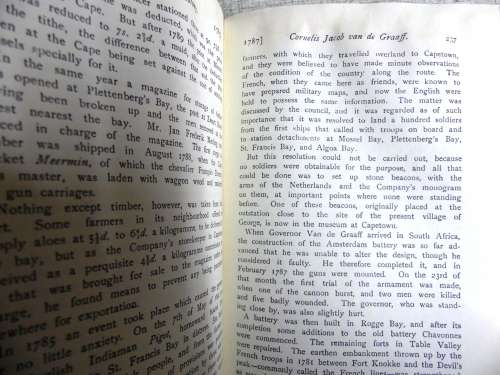 was reduced to 7s. 2¾d. a muid,
title, the difference between the
at the Cape being set against the
specially for it.
In the same year a magazine for storage of
opened at Plettenberg's Bay, the post at
having been broken up and the
nearest the bay. Mr. Jan Frederik
in charge of the magazine. The first
was shipped in August 1788, when the
Meermin, of which the chevalier François
master, was laden with waggon wood and
gun carriages.
Nothing except timber, however, was taken from
Some farmers in its neighbourhood offered
aloes at 4¾d. to 6½d. a kilogramme, to be
bay, but as the Company's storekeeper in
as a perquisite 4¾d. a kilogramme
he found means to prevent any being
for exportation.
In 1785 an event took place which caused the
no little anxiety. On the 7th of May of
Indiaman Pigot, homeward
St. Francis Bay in distress.
1787] Cornelis Jacob van de Graaff. 237
farmers, with which they travelled overland to Capetown,
and they were believed to have made minute observations
of the condition of the country along the route. The
French, when they came here as friends, were known to
have prepared military maps, and now the English were
held to possess the same information. The matter was
discussed by the council, and it was regarded as of such
importance that it was resolved to land a hundred soldiers
from the first ships that called with troops on board and
to station detachments at Mossel Bay, Plettenberg's Bay,
St. Francis Bay, and Algoa Bay.
But this resolution could not be carried out, because
no soldiers were obtainable for the purpose, and all that
could be done was to set up stone beacons, with the
arms of the Netherlands and the Company's monogram
on them, at important points where none were standing
before. One of these beacons, originally placed at the
outstation close to the site of the present village of
George, is now in the museum at Capetown.
When Governor Van de Graaff arrived in South Africa,
the construction of the Amsterdam battery was so far ad-
vanced that he was unable to alter the design, though he
considered it faulty. He therefore completed it, and in
February 1787 the guns were mounted. On the 23rd of
that month the first trial of the armament was made,
when one of the cannon burst, and two men were killed
and five badly wounded. The governor, who was stand-
ing close by, was also slightly hurt.
A battery was then built in Rogge Bay, and after its
completion some additions to the old battery Chavonnes
were commenced. The remaining forts in Table Valley
were repaired. The earthen embankment thrown up by the
French troops in 1781 between Fort Knokke and the Devil's
peak, commonly called the French lines, was strengthened